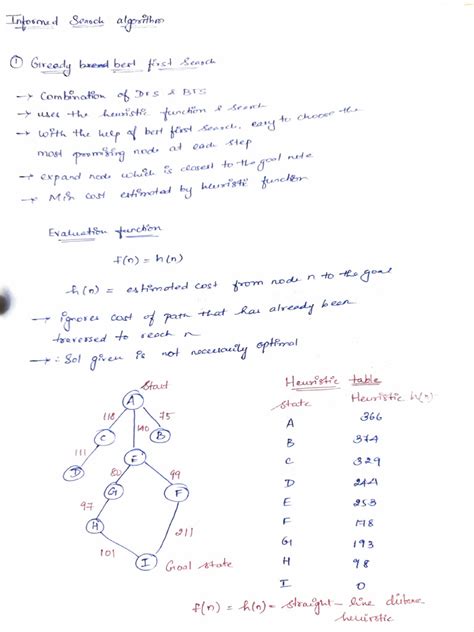 Informed Search algorithm
① Greedy bread best first search
→ Combination of DFS & BFS
→ uses the heuristic function & search
→ with the help of best first search, easy to choose the
most promising node at each step
→ expand node which is closest to the goal note
→ Min cost estimated by heuristic function
Evaluation function
f(n) = h(n)
h(n) = estimated cost from node n to the goal
→ ignores cost of path that has already been
traversed to reach n
→ ∴ Sol given is not necessarily optimal
Start
A
118 140 75
C B
111 E
D 80 99
G F
97
H 211
101
I Goal state
Heuristic table
state Heuristic h(n)
A 366
B 374
C 329
D 244
E 253
F 178
G 193
H 98
I 0
f(n) = h(n) = straight-line distance
heuristic